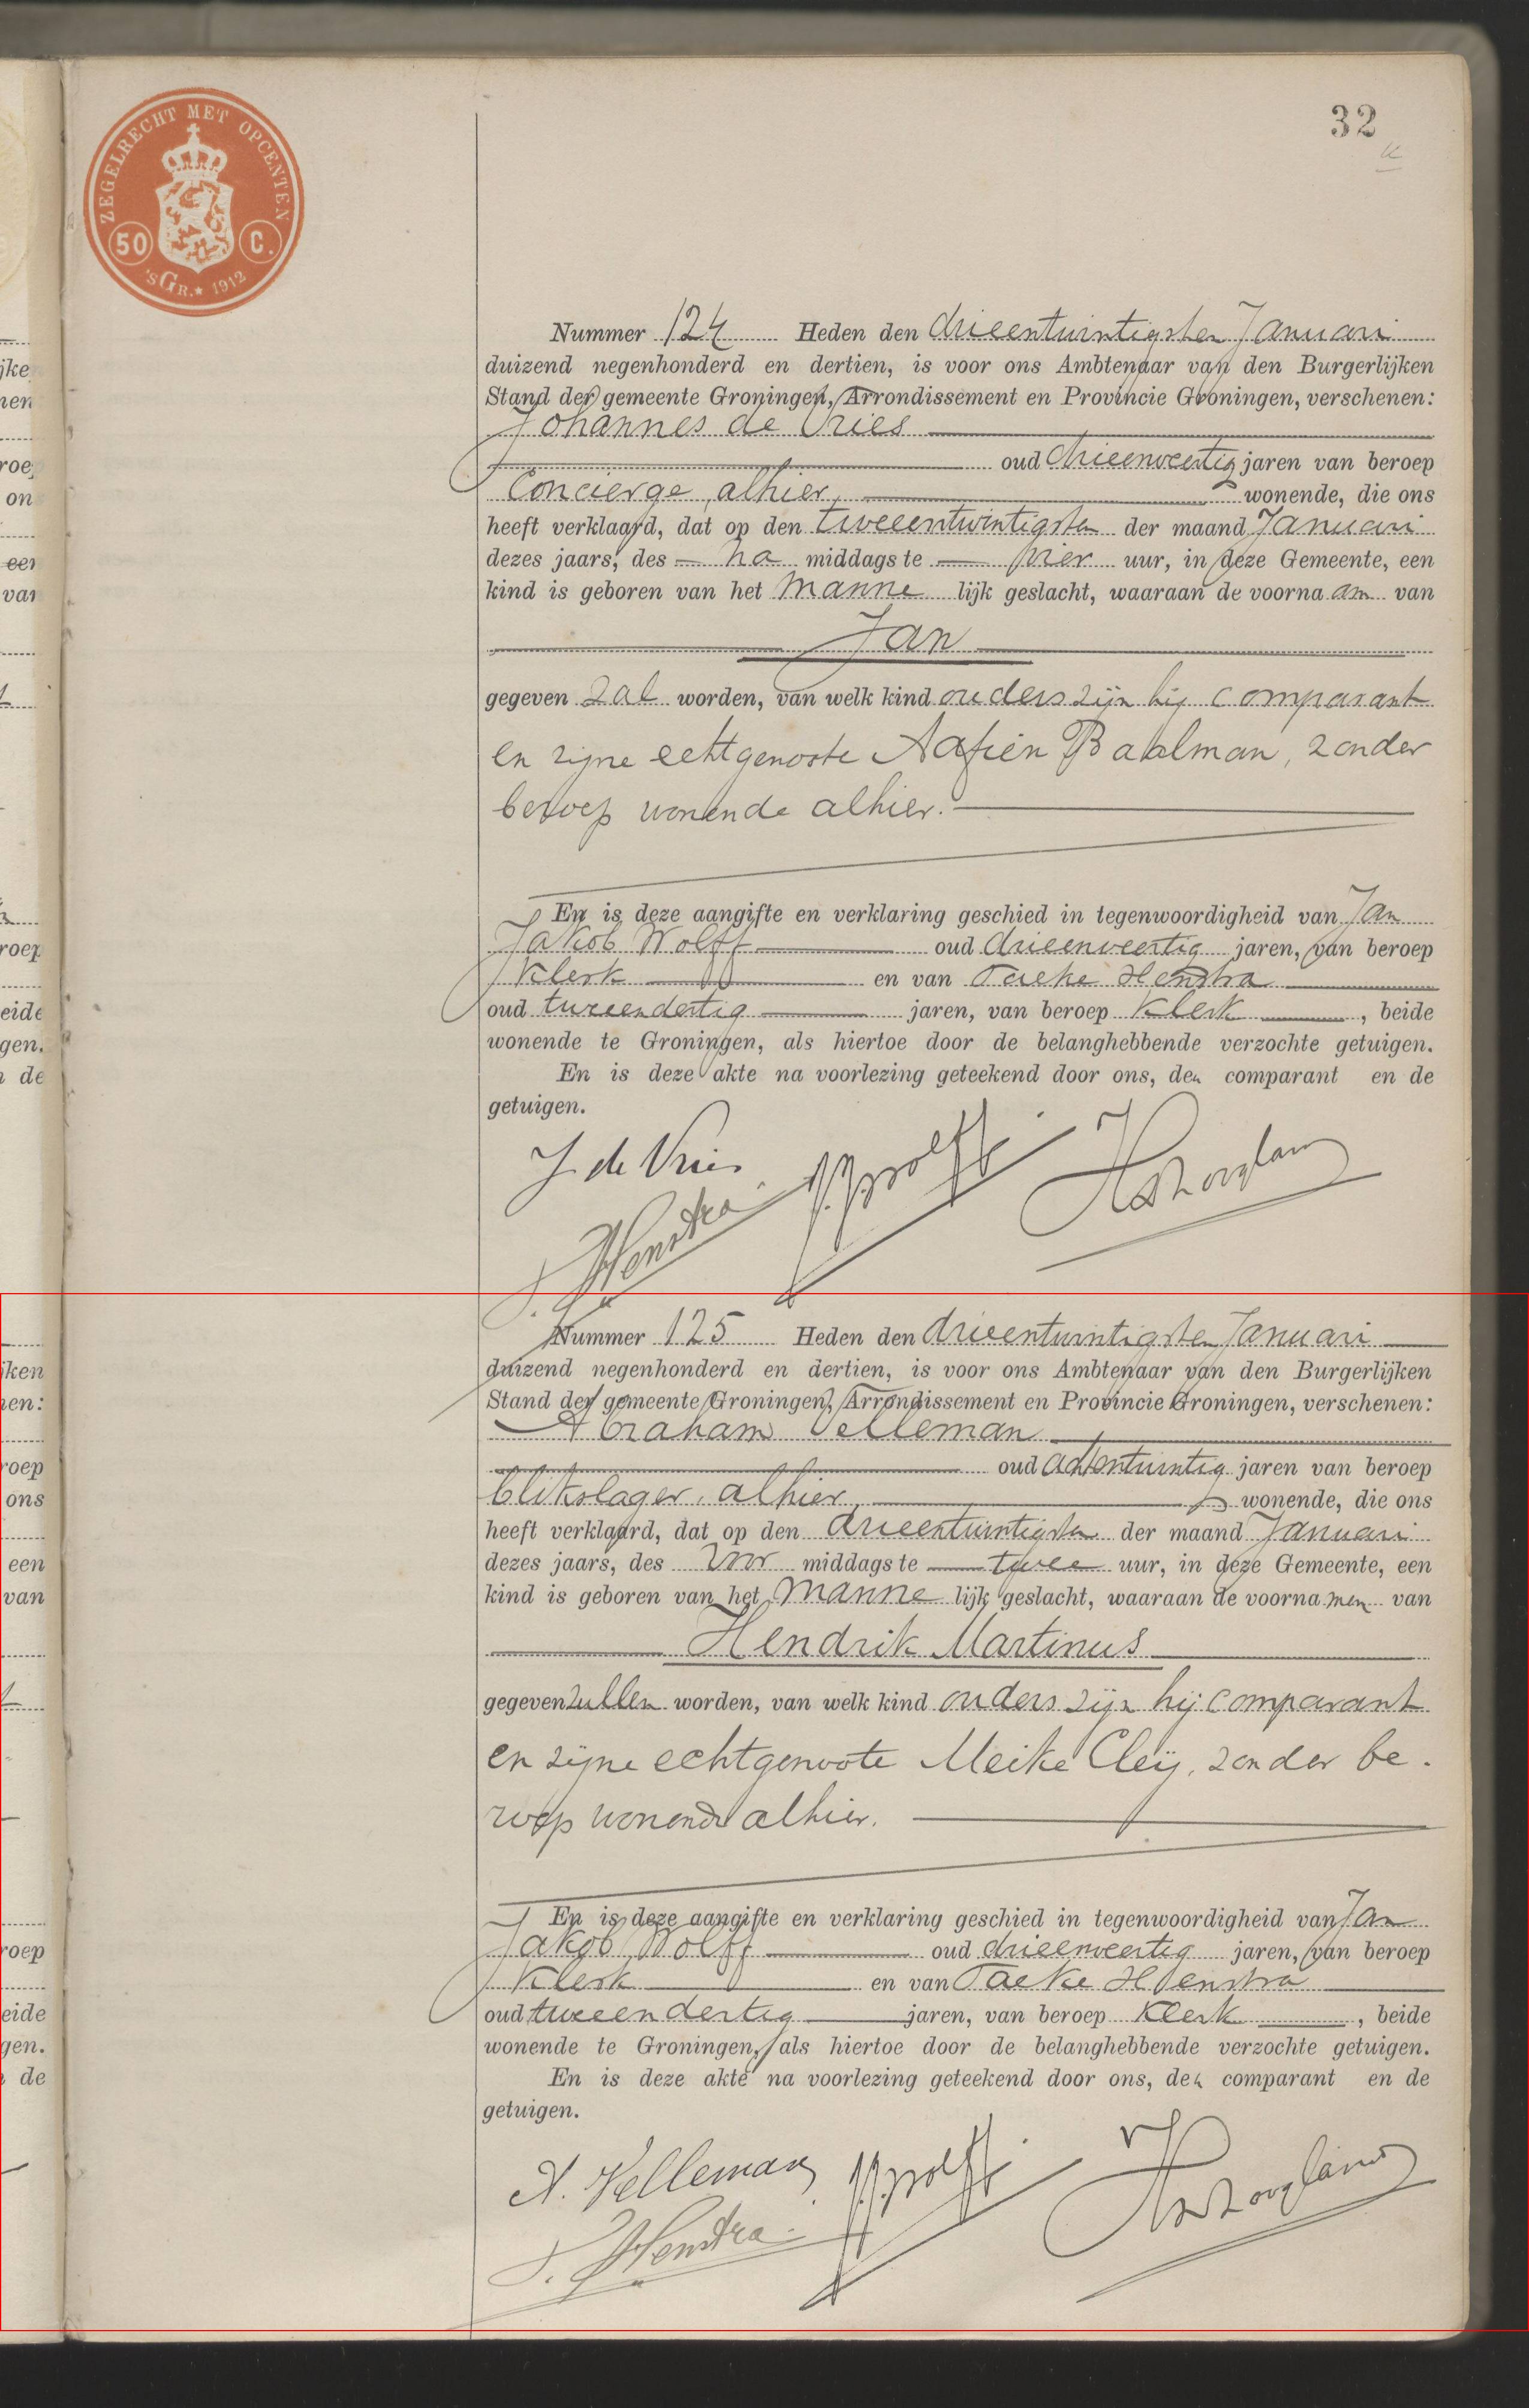 ZEGELRECHT MET OPCENTEN
50 C.
'sGR.★ 1912
32
Nummer 124 Heden den drieentwintigsten Januari
duizend negenhonderd en dertien, is voor ons Ambtenaar van den Burgerlijken
Stand der gemeente Groningen, Arrondissement en Provincie Groningen, verschenen:
Johannes de Vries
oud drieenveertig jaren van beroep
Concierge, alhier, wonende, die ons
heeft verklaard, dat op den tweeentwintigsten der maand Januari
dezes jaars, des na middags te vier uur, in deze Gemeente, een
kind is geboren van het Manne lijk geslacht, waaraan de voorna am van
Jan
gegeven zal worden, van welk kind ouders zijn hij comparant
en zijne echtgenoote Aafien Baalman, zonder
beroep wonende alhier.
En is deze aangifte en verklaring geschied in tegenwoordigheid van Jan
Jakob Wolff oud drieenveertig jaren, van beroep
Klerk en van Taeke Henstra
oud tweeendertig jaren, van beroep Klerk, beide
wonende te Groningen, als hiertoe door de belanghebbende verzochte getuigen.
En is deze akte na voorlezing geteekend door ons, den comparant en de
getuigen.
J. de Vries J.J. Wolff
T. Henstra
Nummer 125 Heden den drieentwintigsten Januari
duizend negenhonderd en dertien, is voor ons Ambtenaar van den Burgerlijken
Stand der gemeente Groningen, Arrondissement en Provincie Groningen, verschenen:
Abraham Velleman
oud achtentwintig jaren van beroep
blikslager, alhier, wonende, die ons
heeft verklaard, dat op den drieentwintigsten der maand Januari
dezes jaars, des voor middags te twee uur, in deze Gemeente, een
kind is geboren van het Manne lijk geslacht, waaraan de voorna men van
Hendrik Martinus
gegeven zullen worden, van welk kind ouders zijn hij comparant
en zijne echtgenoote Meike Cleij, zonder be-
roep wonende alhier.
En is deze aangifte en verklaring geschied in tegenwoordigheid van Jan
Jakob Wolff oud drieenveertig jaren, van beroep
Klerk en van Taeke Henstra
oud tweeendertig jaren, van beroep Klerk, beide
wonende te Groningen, als hiertoe door de belanghebbende verzochte getuigen.
En is deze akte na voorlezing geteekend door ons, den comparant en de
getuigen.
A. Velleman J.J. Wolff
T. Henstra